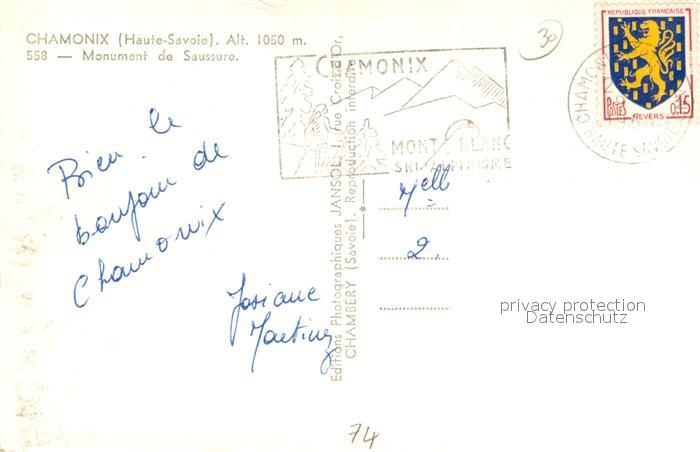 CHAMONIX (Haute-Savoie). Alt. 1050 m.
558 — Monument de Saussure.
30
REPUBLIQUE FRANCAISE
POSTES
0,15
NEVERS
CHAMONIX
HAUTE SAVOIE
CHAMONIX
MONT BLANC
SKI-ALPINISME
Editions Photographiques JANSOL, 1, rue Croix-d'Or,
CHAMBERY (Savoie). Reproduction interdite
Bien le
bonjour de
Chamonix
Josiane
Martinez
Melle
2.
privacy protection
Datenschutz
74